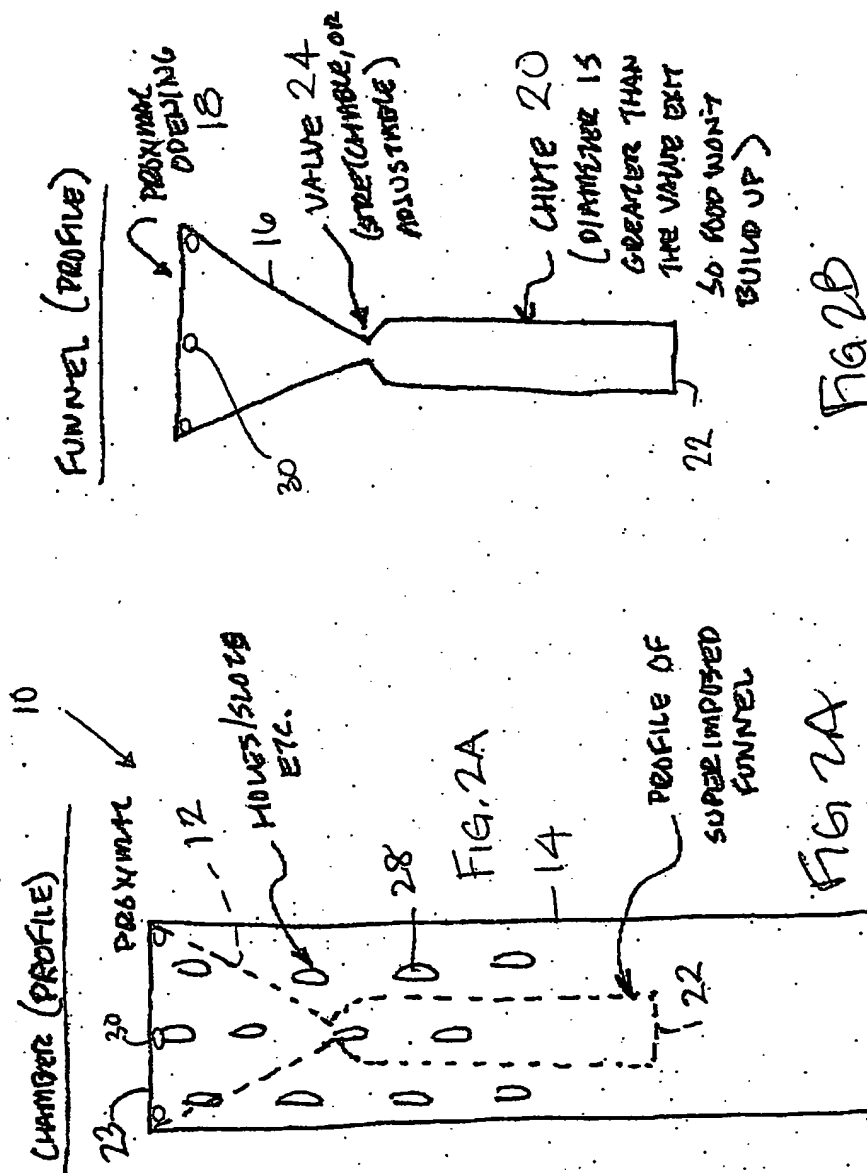 CHAMBER (PROFILE)
10
PROXIMAL
23
30
12
HOLES/SLOTS
ETC.
28
FIG. 2A
14
PROFILE OF
SUPERIMPOSED
FUNNEL
22
FIG 2A
FUNNEL (PROFILE)
PROXIMAL
OPENING
18
30
16
VALVE 24
(STRETCHABLE, OR
ADJUSTABLE)
CHUTE 20
(DIAMETER IS
GREATER THAN
THE VALVE EXIT
SO FOOD WON'T
BUILD UP)
22
FIG. 2B